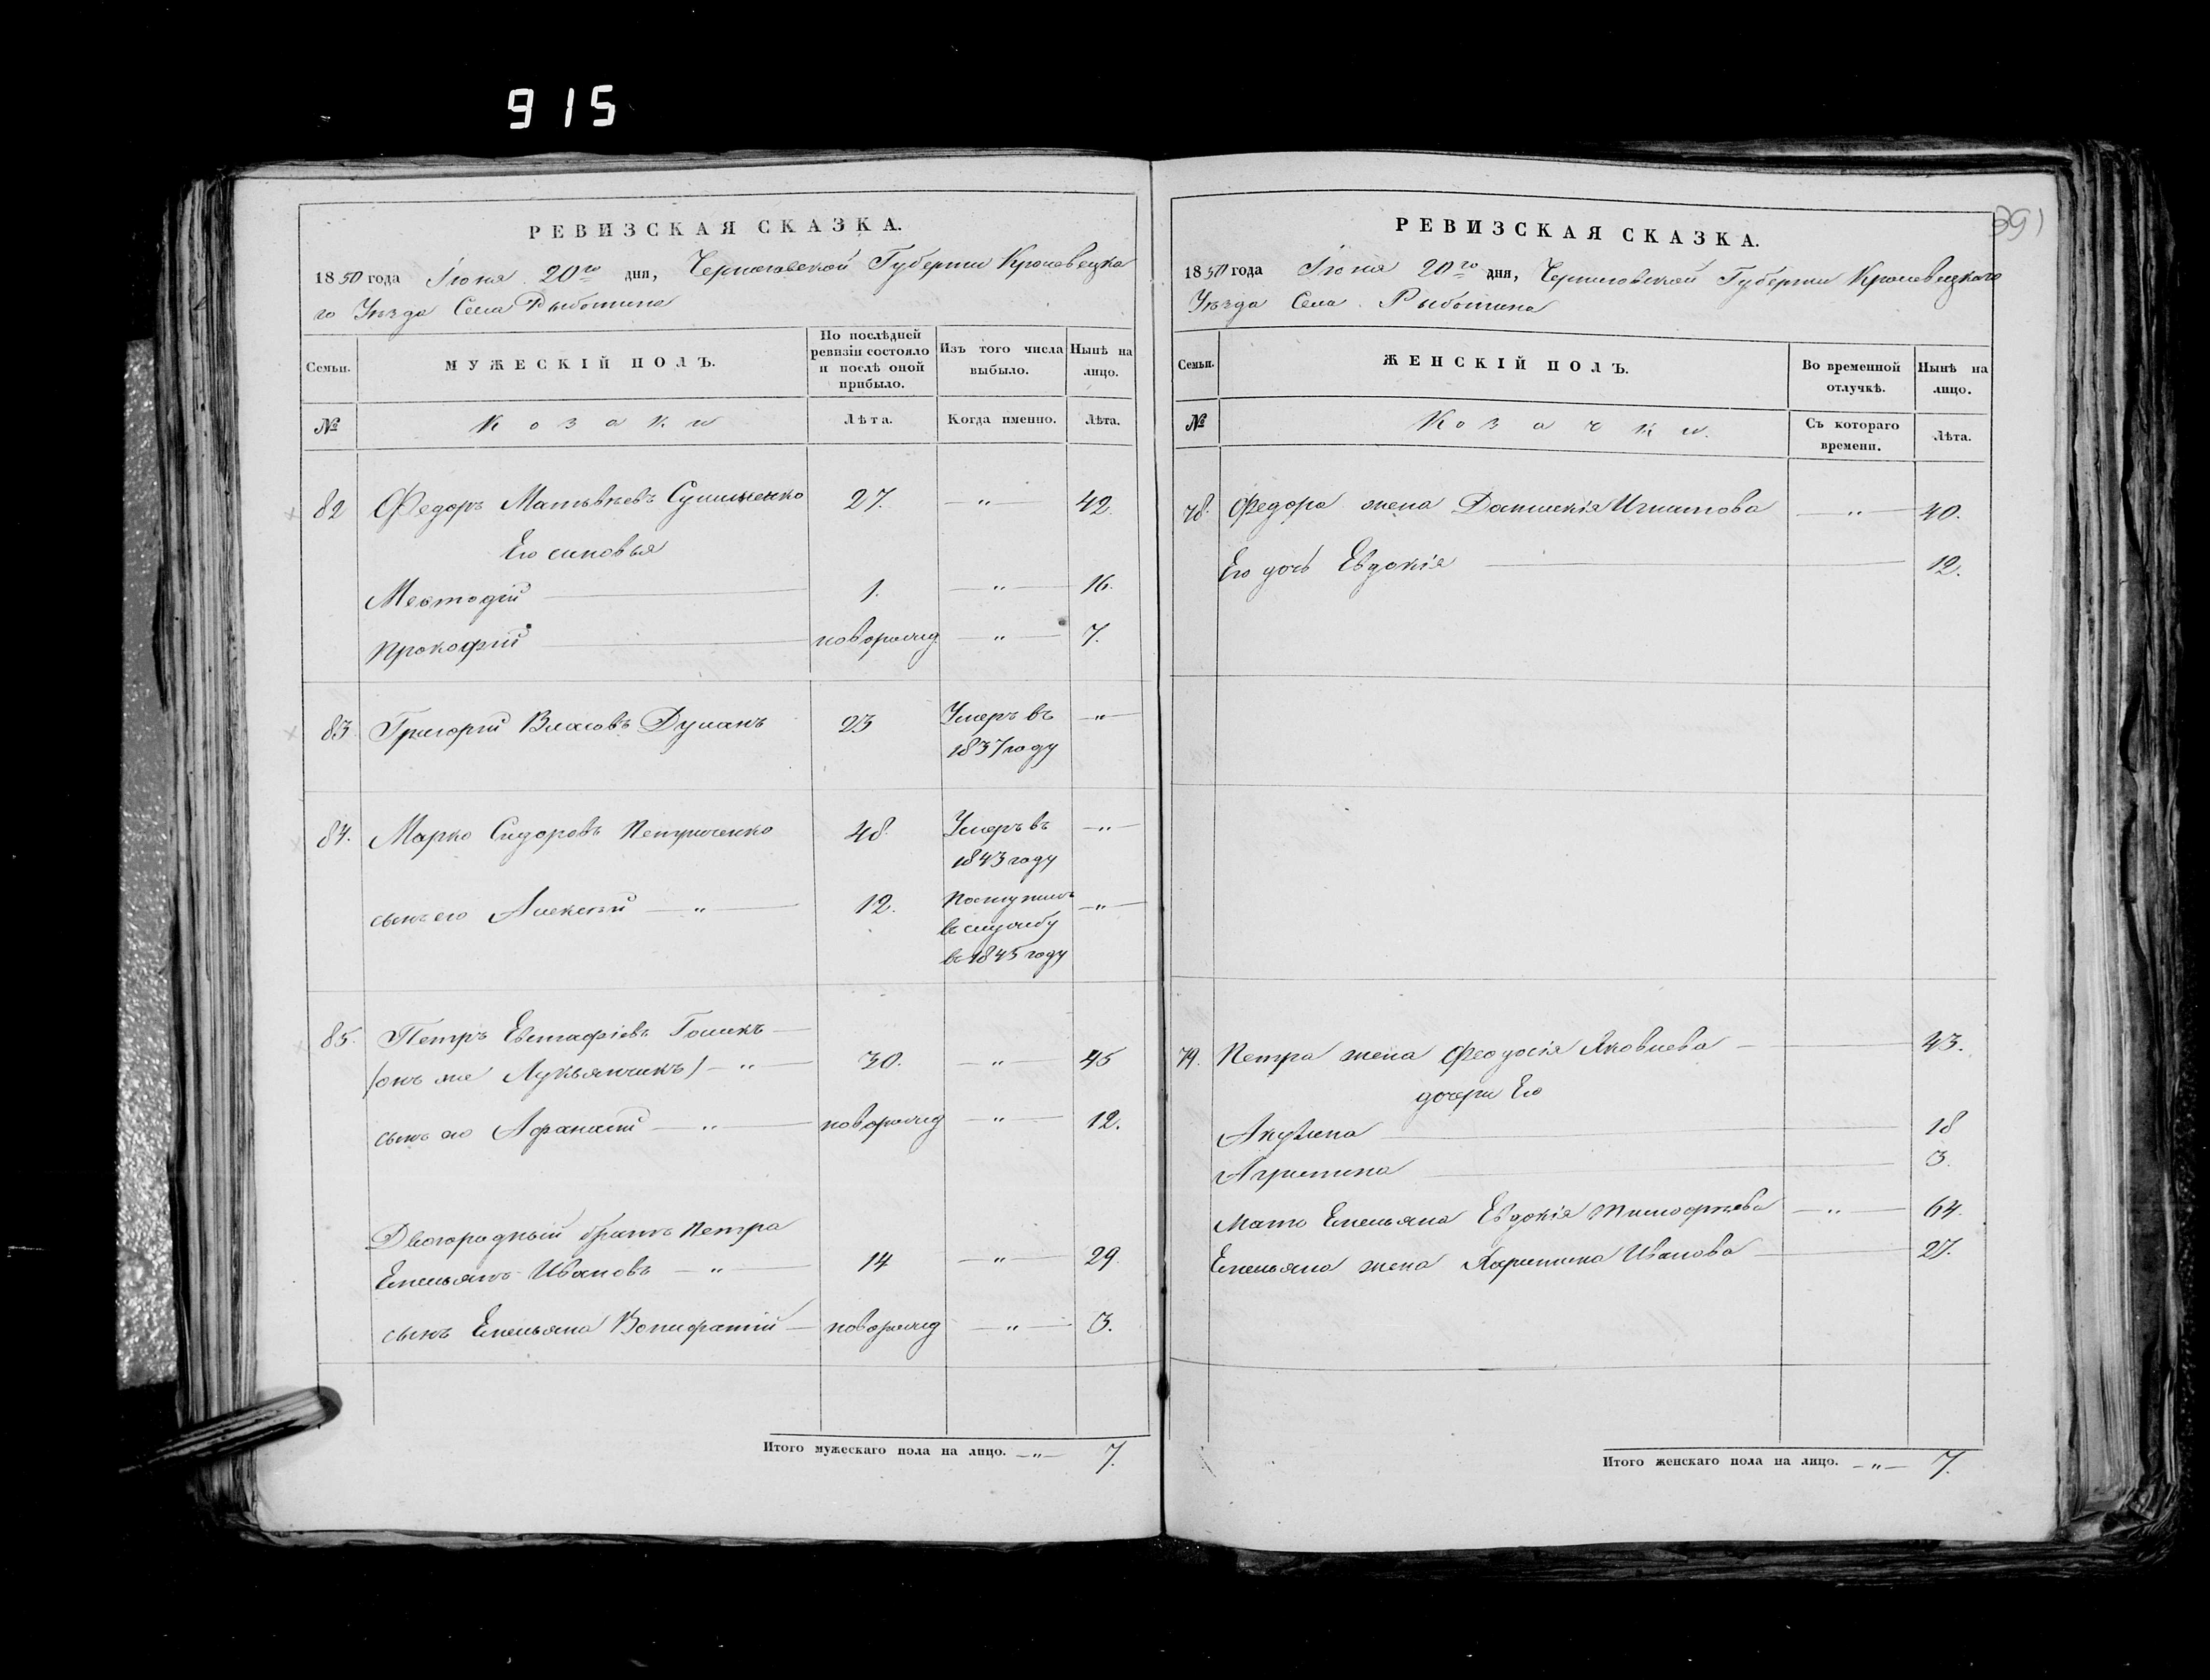 915
РЕВИЗСКАЯ СКАЗКА.
1850 года Июня 20го дня, Черниговской Губернии Кролевецка
го Уѣзда Села Рыботина
Семьи.
МУЖЕСКІЙ ПОЛЪ.
По послѣдней ревизіи состояло и послѣ оной прибыло.
Изъ того числа выбыло.
Нынѣ на лицо.
№
Козаки
Лѣта.
Когда именно.
Лѣта.
82 Федоръ Матвѣевъ 27. — " — 42.
Его сыновья
Меѳтодій 1. — " — 16.
Прокофій новорожд — " — 7.
83 Григорій Власовъ Думанъ 23 Умеръ въ — " —
1837 году
84. Марко Сидоровъ Петриченко 48. Умеръ въ — " —
1843 году
сынъ его Алексѣй — " — 12. Поступилъ — " —
въ службу
въ 1845 году
85. Петръ Евстафіевъ Гомекъ —
(онъ же Лукьянчикъ) — " — 30. — " — 45
сынъ его Афанасій — " — новорожд — " — 12.
Двоюродный братъ Петра
Емельянъ Ивановъ — " — 14 — " — 29.
сынъ Емельяна Вонифатій — новорожд — " — 3.
Итого мужескаго пола на лицо. — " — 7.
391
РЕВИЗСКАЯ СКАЗКА.
1850 года Июня 20го дня, Черниговской Губернии Кролевецкаго
Уѣзда Села Рыботина
Семьи.
ЖЕНСКІЙ ПОЛЪ.
Во временной отлучкѣ.
Нынѣ на лицо.
№
Козачки.
Съ котораго времени.
Лѣта.
78. Федора жена — " — 40.
Его дочь Евдокія — 12.
79. Петра жена Феодосія Яковлева — 43.
дочери Его
Акулина — 18
Агрипина — 3.
Мать Емельяна Евдокія Тимофѣева — " — 64.
Емельяна жена Харитина Иванова — 27.
Итого женскаго пола на лицо. — " — 7.